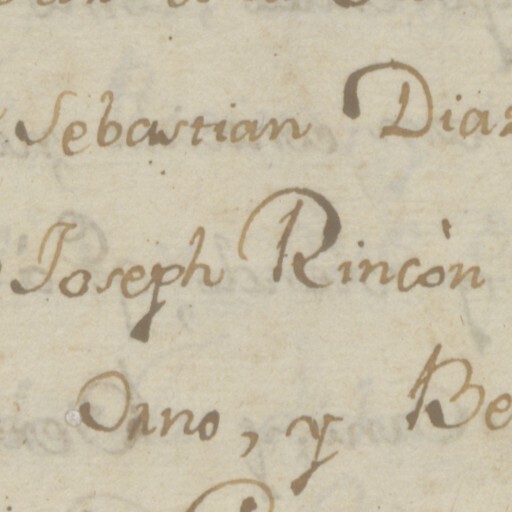 Sebastian Diaz
Joseph Rincòn
, y Be